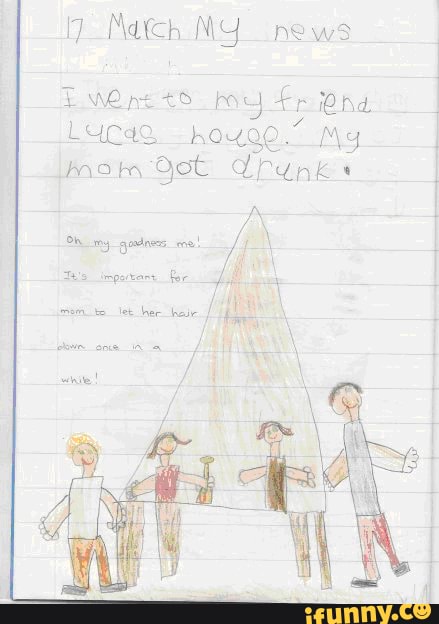 17 March My news
I went to my friend
Lucas house. My
mom got drunk.
Oh my goodness me!
It's important for
mom to let her hair
down once in a
while!
ifunny.co